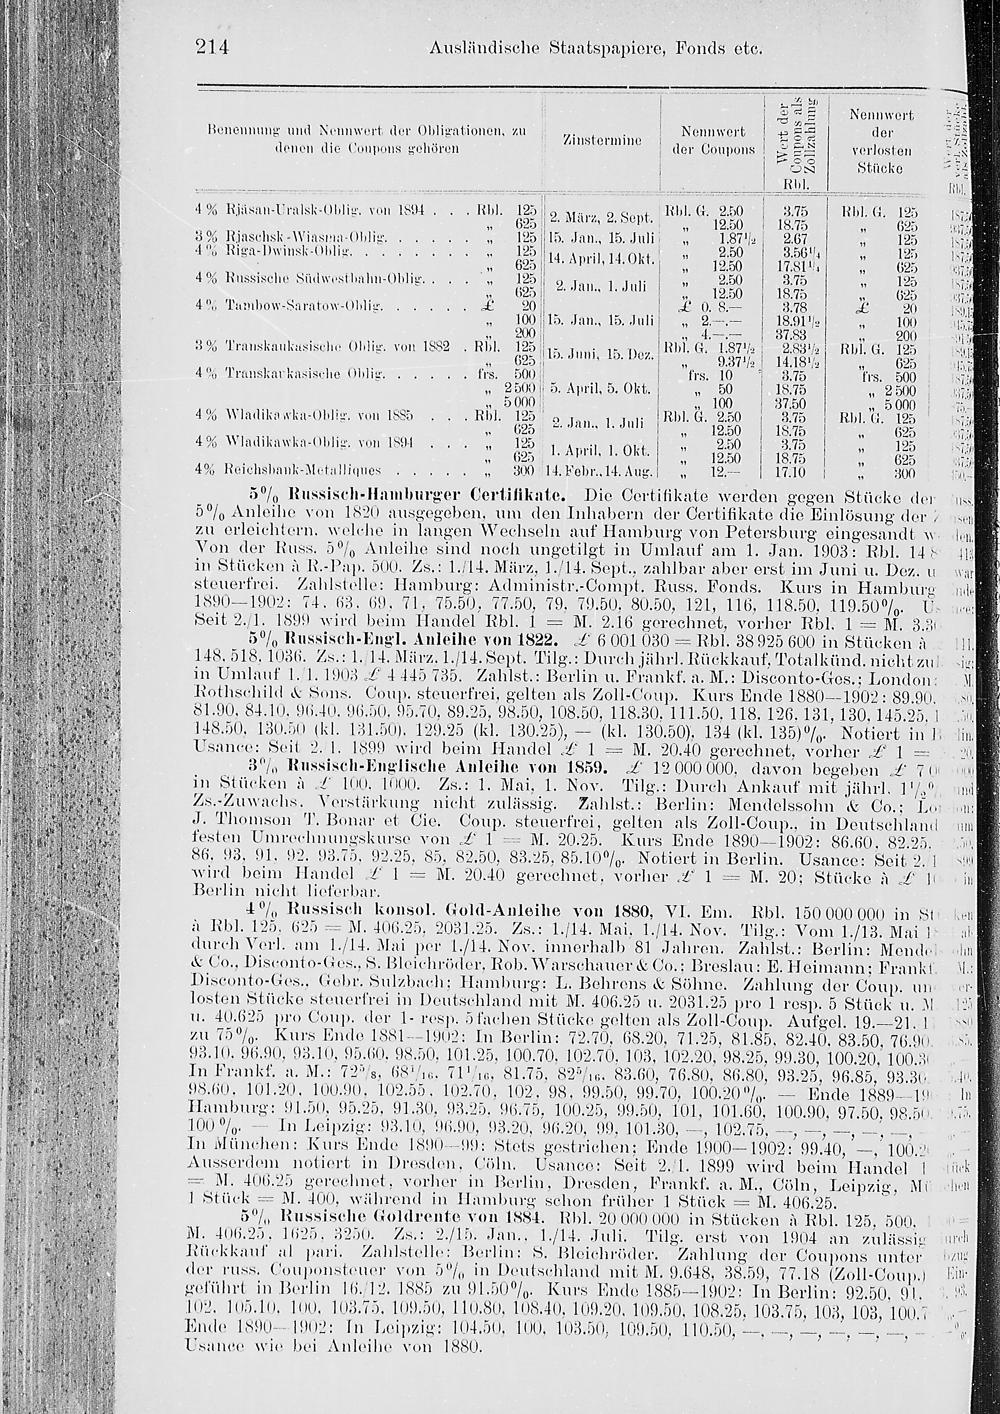 214 Ausländische Staatspapiere, Fonds etc.
Benennung und Nennwert der Obligationen, zu denen die Coupons gehören | Zinstermine | Nennwert der Coupons | Wert der Coupons als Zollzahlung Rbl. | Nennwert der verlosten Stücke
4% Rjäsan-Uralsk-Oblig. von 1894 . . . Rbl. 125 | 2. März, 2. Sept. | Rbl. G. 2.50 | 3.75 | Rbl. G. 125
„ 625 | „ 12.50 | 18.75 | „ 625
3% Rjaschsk-Wiasma-Oblig. . . . . . „ 125 | 15. Jan., 15. Juli | „ 1.87½ | 2.67 | „ 125
4% Riga-Dwinsk-Oblig. . . . . . . . „ 125 | 14. April, 14. Okt. | „ 2.50 | 3.56¼ | „ 125
„ 625 | „ 12.50 | 17.81¼ | „ 625
4% Russische Südwestbahn-Oblig. . . . „ 125 | 2. Jan., 1. Juli | „ 2.50 | 3.75 | „ 125
„ 625 | „ 12.50 | 18.75 | „ 625
4% Tambow-Saratow-Oblig. . . . . . . £ 20 | 15. Jan., 15. Juli | £ 0. 8.— | 3.78 | £ 20
„ 100 | „ 2.—.— | 18.91½ | „ 100
„ 200 | „ 4.—.— | 37.83 | „ 200
3% Transkaukasische Oblig. von 1882 . Rbl. 125 | 15. Juni, 15. Dez. | Rbl. G. 1.87½ | 2.83½ | Rbl. G. 125
„ 625 | „ 9.37½ | 14.18½ | „ 625
4% Transkaukasische Oblig. . . . . . frs. 500 | 5. April, 5. Okt. | frs. 10 | 3.75 | frs. 500
„ 2500 | „ 50 | 18.75 | „ 2500
„ 5000 | „ 100 | 37.50 | „ 5000
4% Wladikawka-Oblig. von 1885 . . . Rbl. 125 | 2. Jan., 1. Juli | Rbl. G. 2.50 | 3.75 | Rbl. G. 125
„ 625 | „ 12.50 | 18.75 | „ 625
4% Wladikawka-Oblig. von 1894 . . . „ 125 | 1. April, 1. Okt. | „ 2.50 | 3.75 | „ 125
„ 625 | „ 12.50 | 18.75 | „ 625
4% Reichsbank-Metalliques . . . . . „ 300 | 14. Febr., 14. Aug. | „ 12.— | 17.10 | „ 300
5% Russisch-Hamburger Certifikate. Die Certifikate werden gegen Stücke der
5% Anleihe von 1820 ausgegeben, um den Inhabern der Certifikate die Einlösung der
zu erleichtern, welche in langen Wechseln auf Hamburg von Petersburg eingesandt
Von der Russ. 5% Anleihe sind noch ungetilgt in Umlauf am 1. Jan. 1903: Rbl.
in Stücken à R.-Pap. 500. Zs.: 1./14. März, 1./14. Sept., zahlbar aber erst im Juni u. Dez. u
steuerfrei. Zahlstelle: Hamburg: Administr.-Compt. Russ. Fonds. Kurs in Hamburg
1890—1902: 74, 63, 69, 71, 75.50, 77.50, 79, 79.50, 80.50, 121, 116, 118.50, 119.50%.
Seit 2./1. 1899 wird beim Handel Rbl. 1 = M. 2.16 gerechnet, vorher Rbl. 1 = M.
5% Russisch-Engl. Anleihe von 1822. £ 6 001 030 = Rbl. 38 925 600 in Stücken à
148, 518, 1036. Zs.: 1./14. März, 1./14. Sept. Tilg.: Durch jährl. Rückkauf, Totalkünd. nicht
in Umlauf 1./1. 1903 £ 4 445 735. Zahlst.: Berlin u. Frankf. a. M.: Disconto-Ges.; London:
Rothschild & Sons. Coup. steuerfrei, gelten als Zoll-Coup. Kurs Ende 1880—1902: 89.90,
81.90, 84.10, 96.40, 96.50, 95.70, 89.25, 98.50, 108.50, 118.30, 111.50, 118, 126, 131, 130, 145.25,
148.50, 130.50 (kl. 131.50), 129.25 (kl. 130.25), — (kl. 130.50), 134 (kl. 135)%. Notiert in
Usance: Seit 2./1. 1899 wird beim Handel £ 1 = M. 20.40 gerechnet, vorher £ 1 =
3% Russisch-Englische Anleihe von 1859. £ 12 000 000, davon begeben £
in Stücken à £ 100, 1000. Zs.: 1. Mai, 1. Nov. Tilg.: Durch Ankauf mit jährl. 1½%
Zs.-Zuwachs. Verstärkung nicht zulässig. Zahlst.: Berlin: Mendelssohn & Co.;
J. Thomson T. Bonar et Cie. Coup. steuerfrei, gelten als Zoll-Coup., in Deutschland
festen Umrechnungskurse von £ 1 = M. 20.25. Kurs Ende 1890—1902: 86.60, 82.25,
86, 93, 91, 92, 93.75, 92.25, 85, 82.50, 83.25, 85.10%. Notiert in Berlin. Usance: Seit 2.
wird beim Handel £ 1 = M. 20.40 gerechnet, vorher £ 1 = M. 20; Stücke à £
Berlin nicht lieferbar.
4% Russisch konsol. Gold-Anleihe von 1880, VI. Em. Rbl. 150 000 000 in
à Rbl. 125, 625 = M. 406.25, 2031.25. Zs.: 1./14. Mai, 1./14. Nov. Tilg.: Vom 1./13. Mai
durch Verl. am 1./14. Mai per 1./14. Nov. innerhalb 81 Jahren. Zahlst.: Berlin:
& Co., Disconto-Ges., S. Bleichröder, Rob. Warschauer & Co.; Breslau: E. Heimann; Frankf.
Disconto-Ges., Gebr. Sulzbach; Hamburg: L. Behrens & Söhne. Zahlung der Coup.
losten Stücke steuerfrei in Deutschland mit M. 406.25 u. 2031.25 pro 1 resp. 5 Stück u. M
u. 40.625 pro Coup. der 1- resp. 5fachen Stücke gelten als Zoll-Coup. Aufgel. 19.—21.
zu 75%. Kurs Ende 1881—1902: In Berlin: 72.70, 68.20, 71.25, 81.85, 82.40, 83.50, 76.90,
93.10, 96.90, 93.10, 95.60, 98.50, 101.25, 100.70, 102.70, 103, 102.20, 98.25, 99.30, 100.20,
In Frankf. a. M.: 72⅝, 68¹/₁₆, 71¹/₁₆, 81.75, 82⁵/₁₆, 83.60, 76.80, 86.80, 93.25, 96.85, 93.30,
98.60, 101.20, 100.90, 102.55, 102.70, 102, 98, 99.50, 99.70, 100.20%. — Ende 1889—
Hamburg: 91.50, 95.25, 91.30, 93.25, 96.75, 100.25, 99.50, 101, 101.60, 100.90, 97.50,
100%. — In Leipzig: 93.10, 96.90, 93.20, 96.20, 99, 101.30, —, 102.75, —, —, —, —, —,
In München: Kurs Ende 1890—99: Stets gestrichen; Ende 1900—1902: 99.40, —,
Ausserdem notiert in Dresden, Cöln. Usance: Seit 2./1. 1899 wird beim Handel 1
= M. 406.25 gerechnet, vorher in Berlin, Dresden, Frankf. a. M., Cöln, Leipzig,
1 Stück = M. 400, während in Hamburg schon früher 1 Stück = M. 406.25.
5% Russische Goldrente von 1884. Rbl. 20 000 000 in Stücken à Rbl. 125, 500,
M. 406.25, 1625, 3250. Zs.: 2./15. Jan., 1./14. Juli. Tilg. erst von 1904 an zulässig
Rückkauf al pari. Zahlstelle: Berlin: S. Bleichröder. Zahlung der Coupons unter
der russ. Couponsteuer von 5% in Deutschland mit M. 9.648, 38.59, 77.18 (Zoll-Coup.)
geführt in Berlin 16./12. 1885 zu 91.50%. Kurs Ende 1885—1902: In Berlin: 92.50, 91,
102, 105.10, 100, 103.75, 109.50, 110.80, 108.40, 109.20, 109.50, 108.25, 103.75, 103, 103,
Ende 1890—1902: In Leipzig: 104.50, 100, 103.50, 109.50, 110.50, —, —, —, —, —, —,
Usance wie bei Anleihe von 1880.